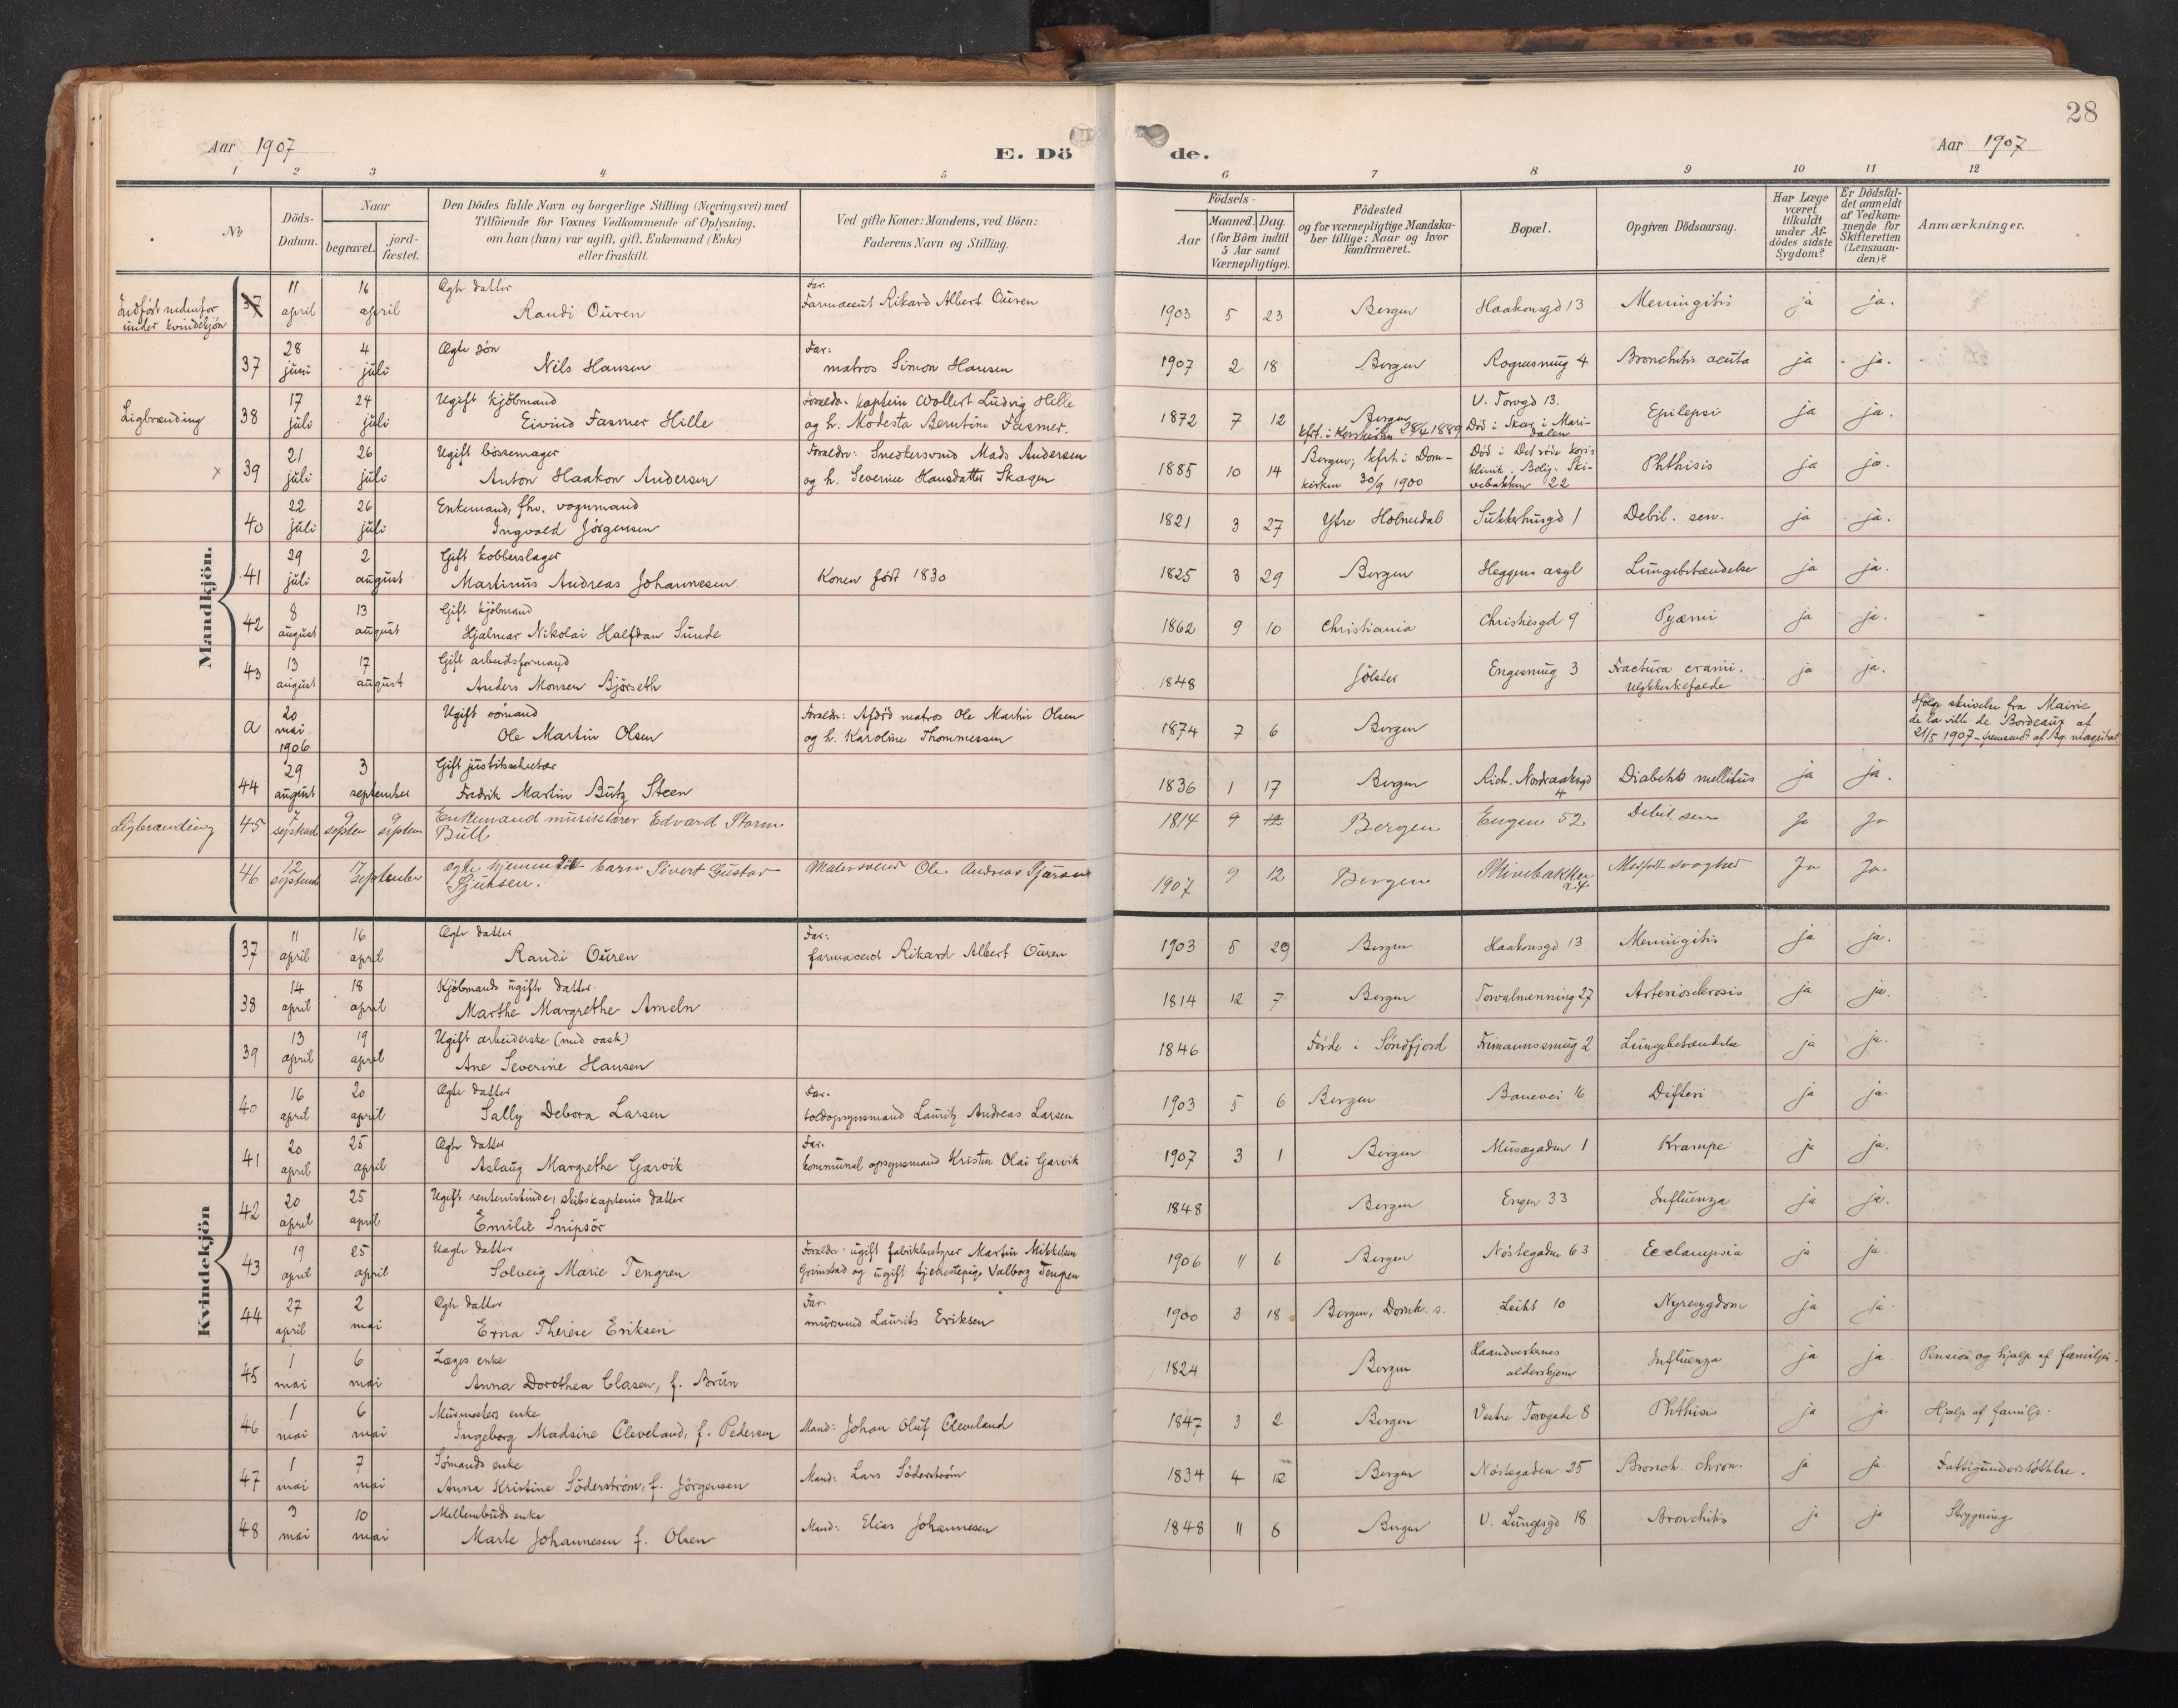 28
Aar 1907
E. Dö
de.
Aar 1907
1 2 3 4 5 6 7 8 9 10 11 12
No
Döds-Datum.
Naar
begravet.
jord-fæstet.
Den Dödes fulde Navn og borgerlige Stilling (Næringsvei) med
Tilföiende for Voxnes Vedkommende af Oplysning,
om han (hun) var ugift, gift, Enkemand (Enke)
eller fraskilt.
Ved gifte Koner: Mandens, ved Börn:
Faderens Navn og Stilling.
Födsels-
Aar
Maaned. Dag.
(for Börn indtil
5 Aar samt
Værnepligtige).
Födested
og for værnepligtige Mandska-
ber tillige: Naar og hvor
konfirmeret.
Bopæl.
Opgiven Dödsaarsag.
Har Læge
været
tilkaldt
under Af-
dödes sidste
Sygdom?
Er Dödsfal-
det anmeldt
af Vedkom-
mende for
Skifteretten
(Lensman-
den)?
Anmærkninger.
Mandkjön.
Indført nedenfor
under kvindekjøn
37 11 april 16 april Ægte datter
Randi Ouren
Far:
Farmaceut Rikard Albert Ouren
1903 5 23 Bergen Haakonsgd 13 Meningitis ja ja.
37 28 juni 4 juli Ægte søn
Nils Hansen
Far:
matros Simon Hansen
1907 2 18 Bergen 4 Bronchitis acuta ja ja.
Ligbrænding
38 17 juli 24 juli Ugift kjøbmand
Eivind Fasmer Hille
Forældre: kaptein Wollert Ludvig Hille
og h. Modesta Berntine Fasmer.
1872 7 12 Bergen
kfrt. i Korskirken 28/4 1889
V. Torvgd 13.
Død i Skar i Mari-
dalen
Epilepsi ja ja.
x
39 21 juli 26 juli Ugift bøssemager
Anton Haakon Andersen
Forældre: Snedkersvend Mads Andersen
og h. Severine Hansdatter Skagen
1885 10 14 Bergen; kfrt. i Dom-
kirken 30/9 1900
Død i Det røde kors's
klinik. Bolig: Ski-
vebakken 22
Phthisis ja ja.
40 22 juli 26 juli Enkemand, fhv. vognmand
Ingvald Jørgensen
1821 3 27 Ytre Holmedal Sukkerhusgd 1 Debil. sen. ja ja.
41 29 juli 2 august Gift kobberslager
Martinus Andreas Johannesen
Konen født 1830
1825 8 29 Bergen Heggens asyl Lungebetændelse ja ja.
42 8 august 13 august Gift kjøbmand
Hjalmar Nikolai Halfdan Sunde
1862 9 10 Christiania Christiesgd 9 Pyæmi ja ja.
43 13 august 17 august Gift arbeidsformand
Anders Monsen Bjørseth
1848 Jølster Engesmug 3 Fractura cranii.
Ulykkestilfælde
ja ja.
a 20 mai 1906 Ugift sømand
Ole Martin Olsen
Forældre: Afdød matros Ole Martin Olsen
og h. Karoline Thommessen
1874 7 6 Bergen
Ifølge skrivelse fra Mairie
de la ville de Bordeaux af
21/5 1907 - fremsendt af Bg. magistrat
44 29 august 3 september Gift justitssekretær
Fredrik Martin Butz Steen
1836 1 17 Bergen Rich. Nordraaksgd
4
Diabetes mellitus ja ja.
Ligbrænding
45 7 septemb 9 septem 9 septem Enkemand musiklærer Edvard Storm
Bull
1814 9 12 Bergen Engen 52 Debil. sen Ja Ja
46 12 septemb 17 september ægte hjemmedøbt barn Sivert Gustav
Malersvend Ole Andreas
1907 9 12 Bergen Skivebakken
24
Medfødt svaghed Ja Ja.
Kvindekjön
37 11 april 16 april Ægte datter
Randi Ouren
Far:
farmaceut Rikard Albert Ouren
1903 5 29 Bergen Haakonsgd 13 Meningitis ja ja.
38 14 april 18 april Kjøbmands ugifte datter
Marthe Margrethe Ameln
1814 12 7 Bergen Torvalmenning 27 Arteriosclerosis ja ja.
39 13 april 19 april Ugift arbeiderske (med vask)
Ane Severine Hansen
1846 Førde i Søndfjord Frimannssmug 2 Lungebetændelse ja ja.
40 16 april 20 april Ægte datter
Sally Debora Larsen
Far:
toldopsynsmand Lauritz Andreas Larsen
1903 5 6 Bergen Banevei 16 Difteri ja ja.
41 20 april 25 april Ægte datter
Aslaug Margrethe Garvik
Far:
kommunal opsynsmand Kristen Olai Garvik
1907 3 1 Bergen Musægaden 1 Krampe ja ja.
42 20 april 25 april Ugift rentenistinde, skibskapteins datter
Emilie Snipsør
1848 Bergen Engen 33 Influenza ja ja.
43 19 april 25 april Uægte datter
Solveig Marie Tengren
Forældre: ugift fabrikbestyrer Martin Mikkelsen
Grimstad og ugift tjenestepige Valborg Tengren
1906 11 6 Bergen Nøstegaden 63 Ecclampsia ja ja.
44 27 april 2 mai Ægte datter
Erna Therese Eriksen
Far:
mursvend Laurits Eriksen
1900 3 18 Bergen, Domk. s. Leitet 10 Nyresygdom ja ja.
45 1 mai 6 mai Læges enke
Anna Dorothea Clasen, f. Brun
1824 Bergen Haandverkernes
aldershjem
Influenza ja ja Pension og hjælp af familje.
46 1 mai 6 mai Murmesters enke
Ingeborg Madsine Cleveland, f. Pedersen
Mand: Johan Oluf Cleveland
1847 3 2 Bergen Vestre Torvgate 8 Phthisis ja ja. Hjælp af familje.
47 1 mai 7 mai Sømands enke
Anna Kristine Söderström, f. Jörgensen
Mand: Lars Söderström
1834 4 12 Bergen Nøstegaden 25 Bronch. chron. ja ja. Fattigunderstøttelse.
48 3 mai 10 mai Mellembuds enke
Marte Johannesen f. Olsen
Mand: Elias Johannesen
1848 11 6 Bergen V. Lungegd 18 Bronchitis ja ja Strygning